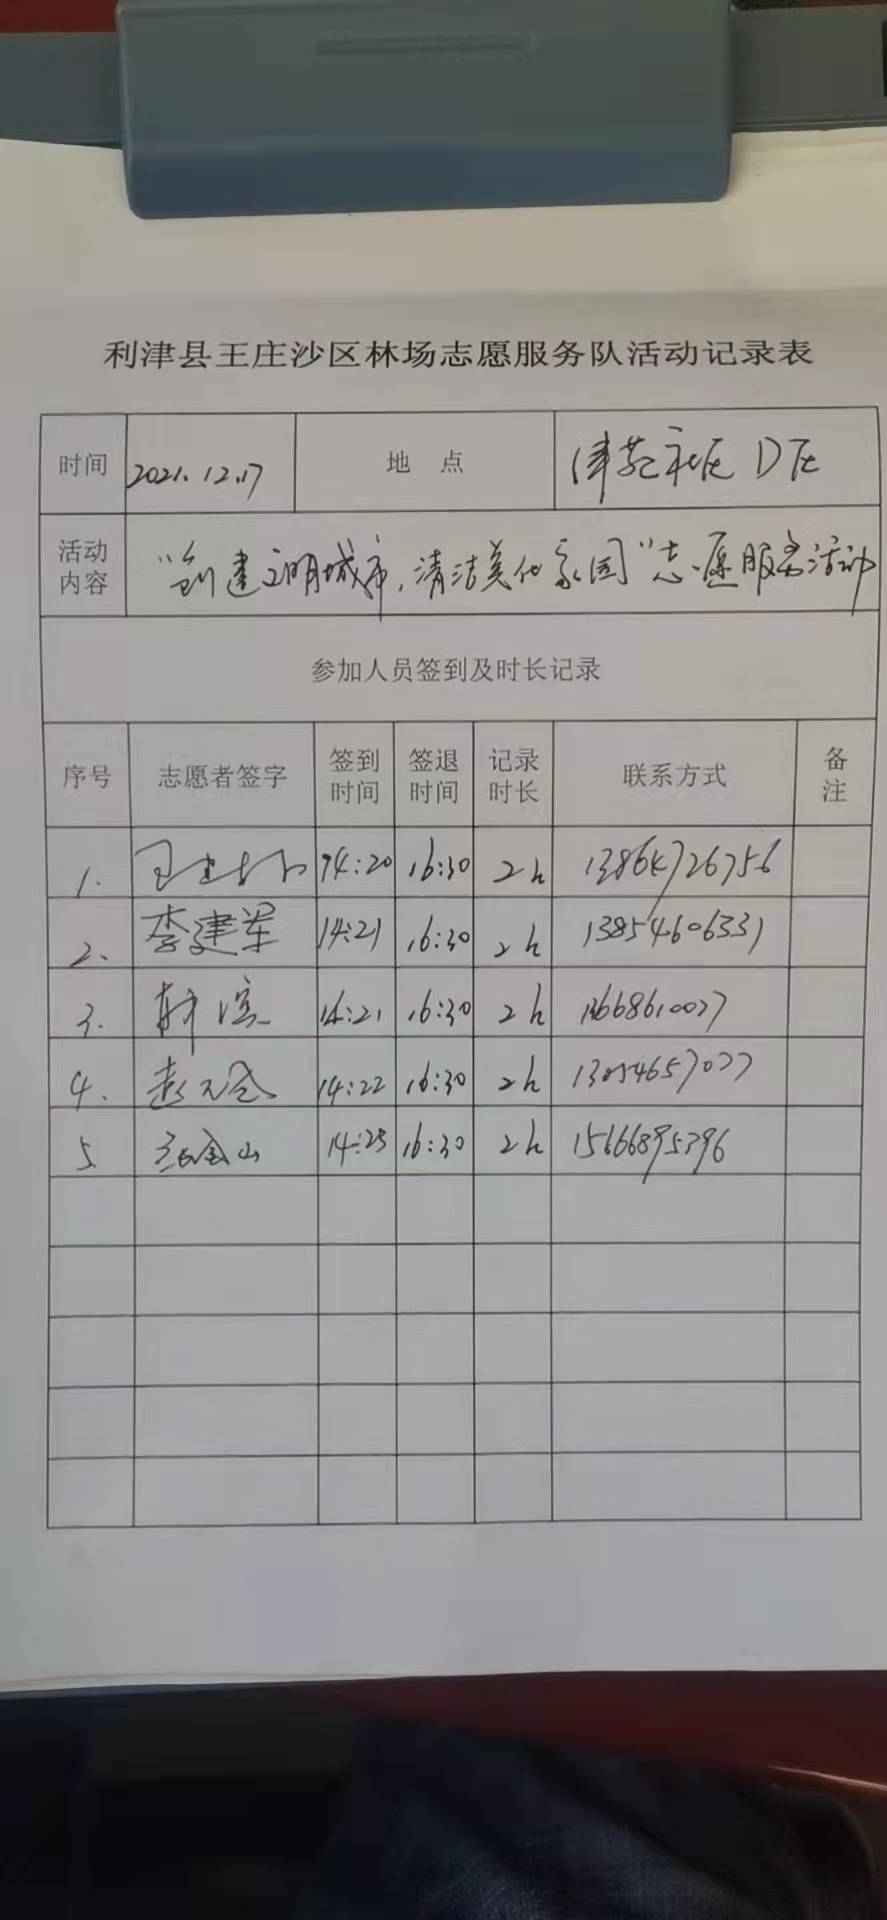 利津县王庄沙区林场志愿服务队活动记录表
时间 2021.12.17 地 点 津苑社区D区
活动内容 “创建文明城市,清洁美化家园”志愿服务活动
参加人员签到及时长记录
序号 志愿者签字 签到时间 签退时间 记录时长 联系方式 备注
1. 14:20 16:30 2h 13864726756
2. 李建军 14:21 16:30 2h 13854606331
3. 14:21 16:30 2h 13668610077
4. 14:22 16:30 2h 13054657077
5. 张金山 14:25 16:30 2h 15666895396